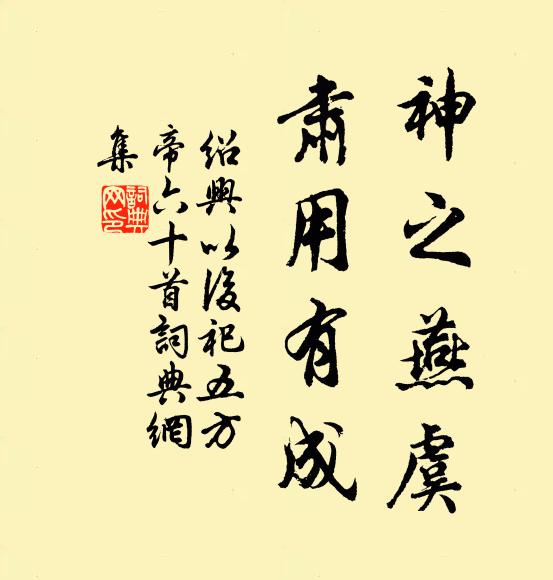 神之燕虞
肅用有成
紹興以後祀五方
帝六十首詞典網
集
詞典
网印